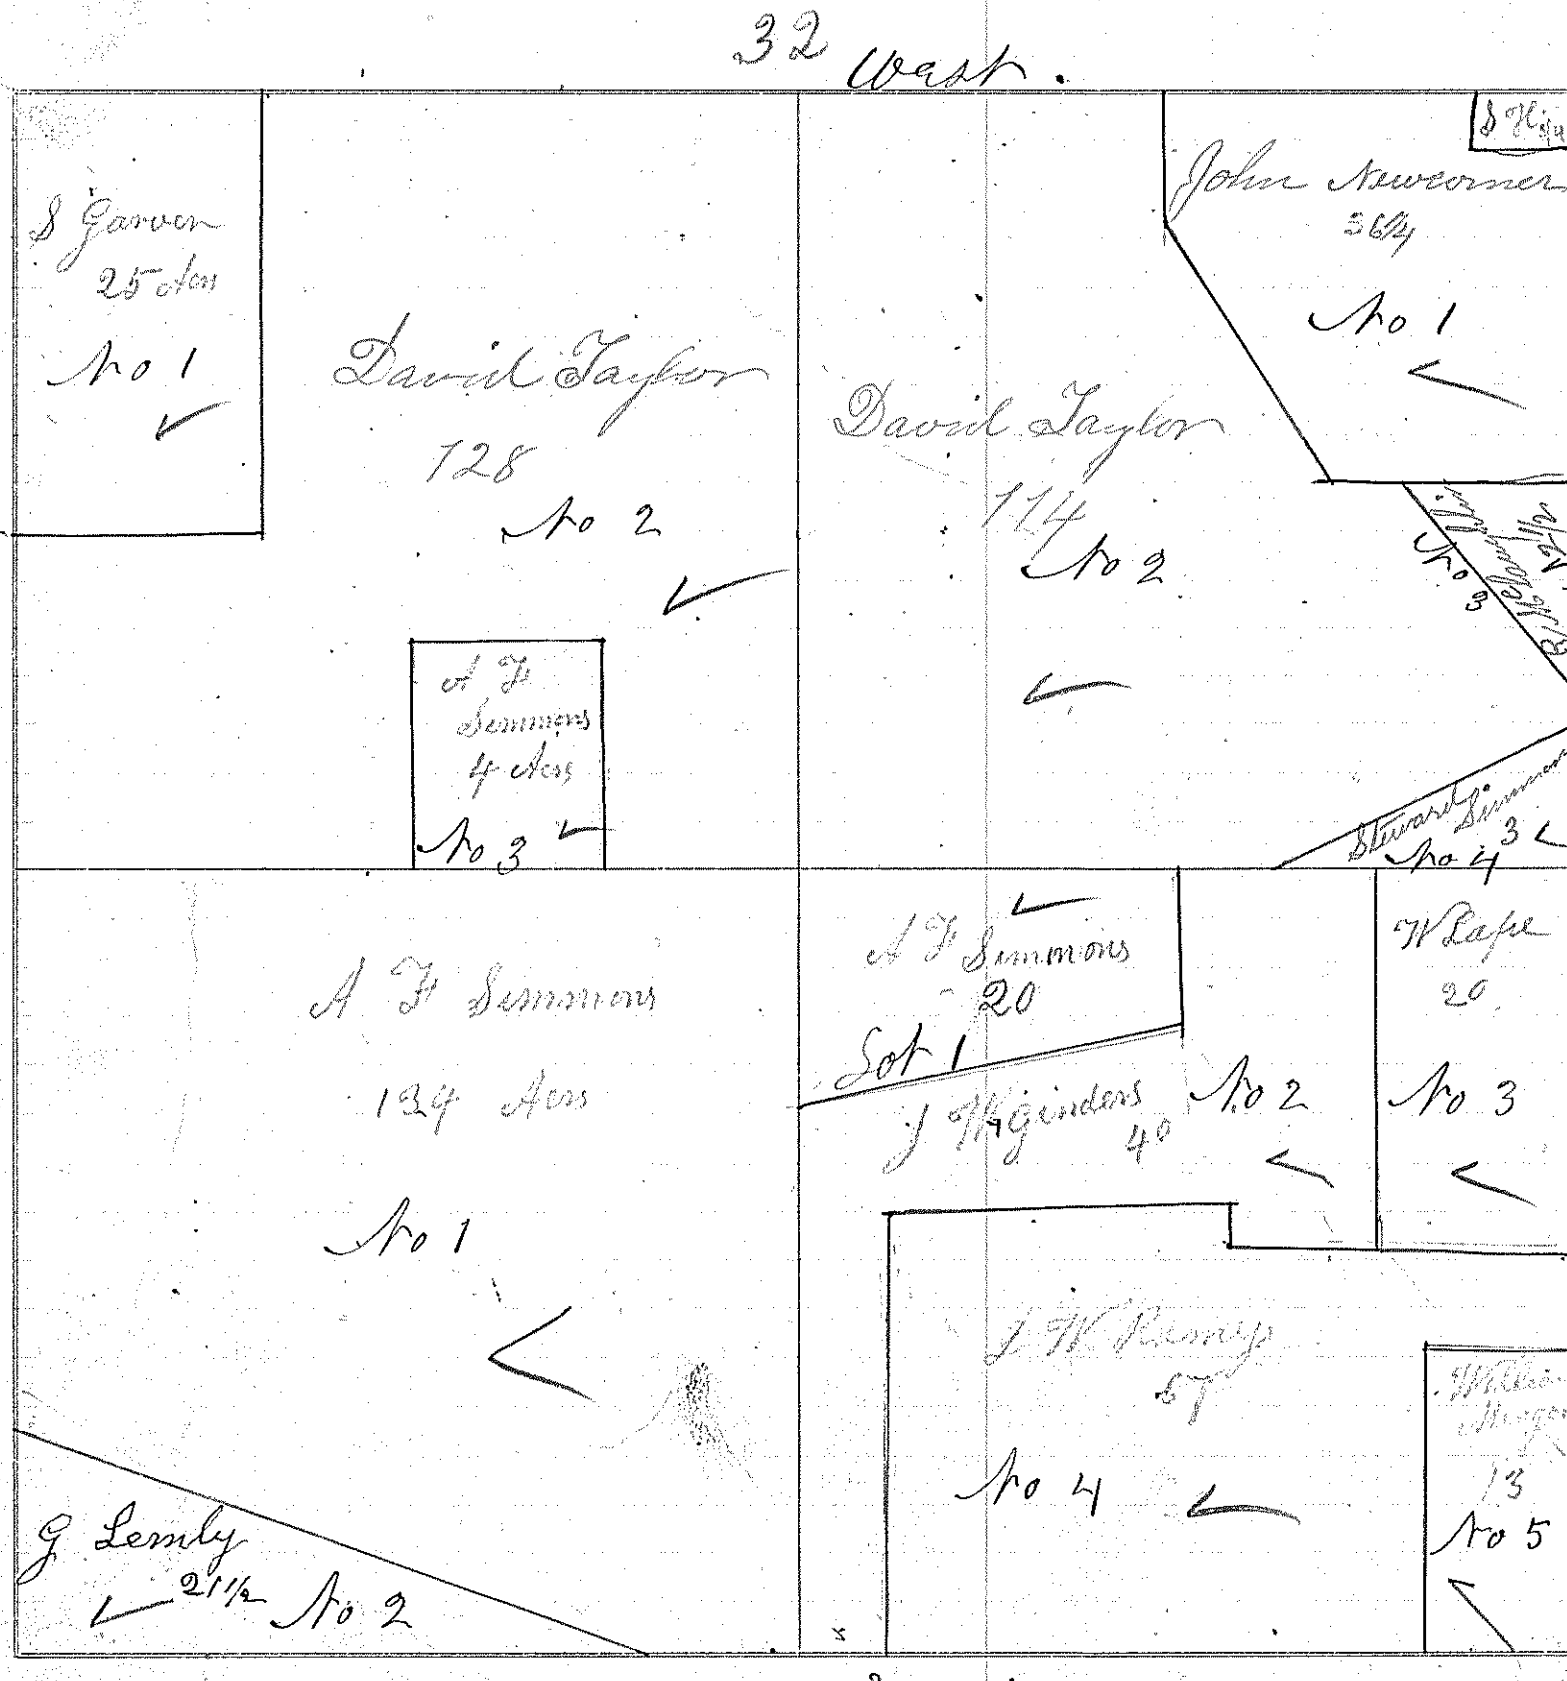 32 West.
S Garver
25 Acrs
No 1
David Taylor
128
No 2
A F
Simmons
4 Acrs
No 3
David Taylor
114
No 2
John Newcomer
No 1
12 1/2
No 3
Steward Simmons
3
No 4
A F Simmons
134 Acrs
No 1
G Lemly
21 1/2 No 2
A F Simmons
20
Lot 1
J W Ginders
40
No 2
W Lape
20
No 3
J W Kemp
67
No 4
13
No 5